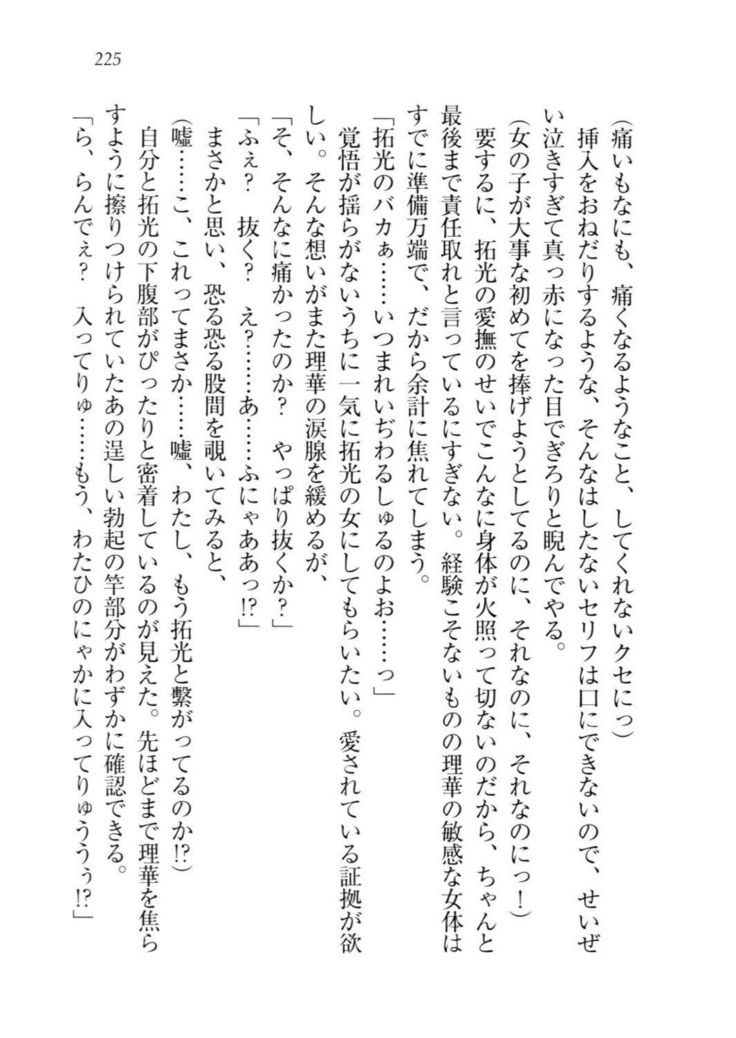 225
(痛いもなにも、痛くなるようなこと、してくれないクセにっ)
挿入をおねだりするような、そんなはしたないセリフは口にできないので、せいぜ
い泣きすぎて真っ赤になった目でぎろりと睨んでやる。
(女の子が大事な初めてを捧げようとしてるのに、それなのに、それなのにっ！)
要するに、拓光の愛撫のせいでこんなに身体が火照って切ないのだから、ちゃんと
最後まで責任取れと言っているにすぎない。経験こそないものの理華の敏感な女体は
すでに準備万端で、だから余計に焦れてしまう。
「拓光のバカぁ……いつまれいぢわるしゅるのよお……っ」
覚悟が揺らがないうちに一気に拓光の女にしてもらいたい。愛されている証拠が欲
しい。そんな想いがまた理華の涙腺を緩めるが、
「そ、そんなに痛かったのか？　やっぱり抜くか？」
「ふぇ？　抜く？　え？……あ……ふにゃああっ!?」
まさかと思い、恐る恐る股間を覗いてみると、
(嘘……こ、これってまさか……嘘、わたし、もう拓光と繋がってるのか!?)
自分と拓光の下腹部がぴったりと密着しているのが見えた。先ほどまで理華を焦ら
すように擦りつけられていたあの逞しい勃起の竿部分がわずかに確認できる。
「ら、らんでぇ？　入ってりゅ……もう、わたひのにゃかに入ってりゅううぅ!?」